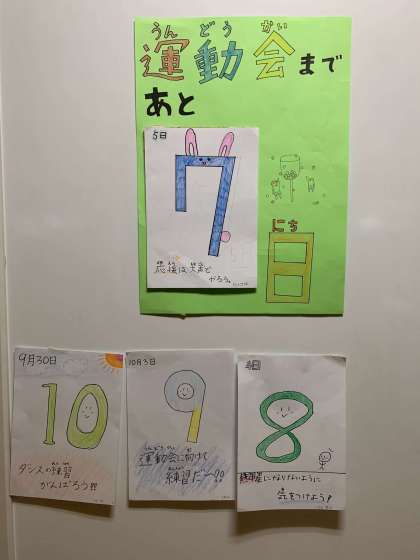 うんどうかい
運動会まで
あと
5日
7
にち
日
応援は笑顔で
やろう。
9月30日
10
ダンスの練習
がんばろう!!
10月3日
9
うんどうかい
運動会に向けて
練習だ〜
4日
8
にならないように
気をつけよう!